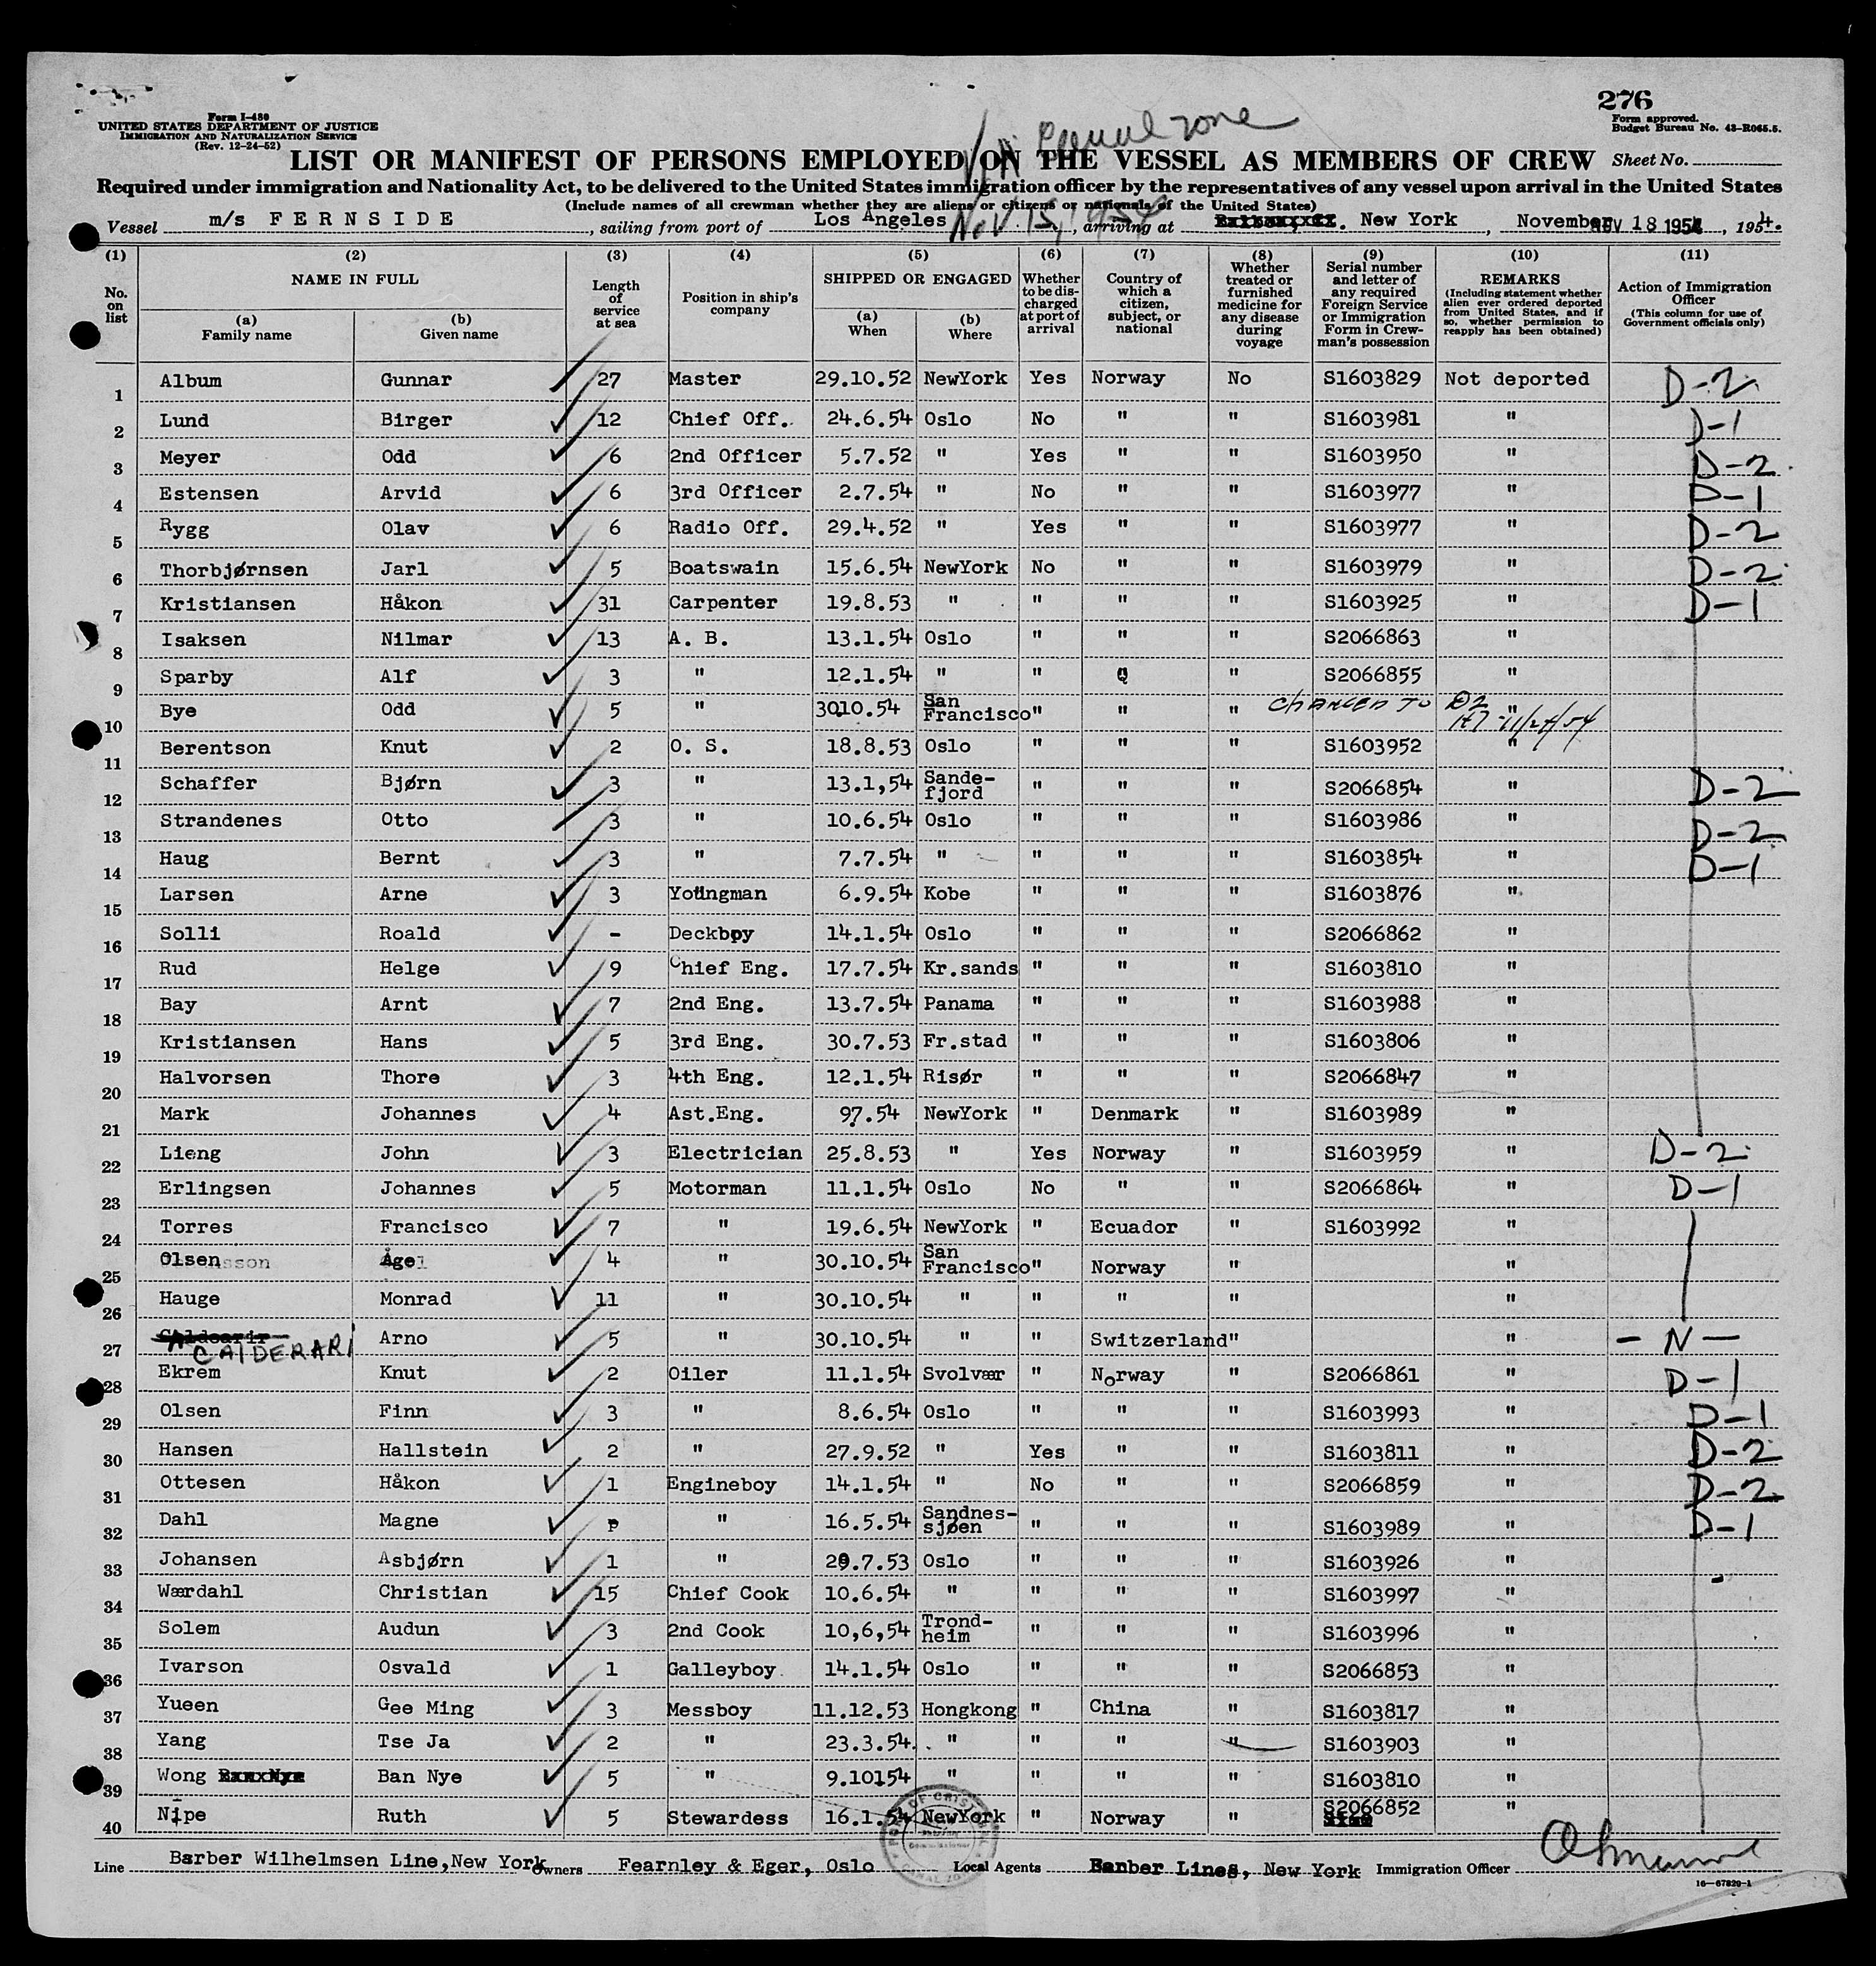 276
Form I-480
UNITED STATES DEPARTMENT OF JUSTICE
IMMIGRATION AND NATURALIZATION SERVICE
(Rev. 12-24-52)
Form approved.
Budget Bureau No. 43-R065.5.
zone
LIST OR MANIFEST OF PERSONS EMPLOYED ON THE VESSEL AS MEMBERS OF CREW Sheet No.
Required under immigration and Nationality Act, to be delivered to the United States immigration officer by the representatives of any vessel upon arrival in the United States
(Include names of all crewman whether they are aliens or citizens or nationals of the United States)
Vessel m/s FERNSIDE, sailing from port of Los Angeles Nov 15, 1954, arriving at New York, November NOV 18 1954, 1954.
(1) No. on list (2) NAME IN FULL (a) Family name (b) Given name (3) Length of service at sea (4) Position in ship's company (5) SHIPPED OR ENGAGED (a) When (b) Where (6) Whether to be discharged at port of arrival (7) Country of which a citizen, subject, or national (8) Whether treated or furnished medicine for any disease during voyage (9) Serial number and letter of any required Foreign Service or Immigration Form in Crewman's possession (10) REMARKS (Including statement whether alien ever ordered deported from United States, and if so, whether permission to reapply has been obtained) (11) Action of Immigration Officer (This column for use of Government officials only)
1 Album Gunnar 27 Master 29.10.52 NewYork Yes Norway No S1603829 Not deported D-2
2 Lund Birger 12 Chief Off. 24.6.54 Oslo No " " S1603981 " D-1
3 Meyer Odd 6 2nd Officer 5.7.52 " Yes " " S1603950 " D-2
4 Estensen Arvid 6 3rd Officer 2.7.54 " No " " S1603977 " D-1
5 Rygg Olav 6 Radio Off. 29.4.52 " Yes " " S1603977 " D-2
6 Thorbjørnsen Jarl 5 Boatswain 15.6.54 NewYork No " " S1603979 " D-2
7 Kristiansen Håkon 31 Carpenter 19.8.53 " " " " S1603925 " D-1
8 Isaksen Nilmar 13 A. B. 13.1.54 Oslo " " " S2066863 "
9 Sparby Alf 3 " 12.1.54 " " " S2066855 "
10 Bye Odd 5 " 3010.54 San Francisco " " " CHANGED TO D2 " 11/24/54
11 Berentson Knut 2 O. S. 18.8.53 Oslo " " " S1603952 "
12 Schaffer Bjørn 3 " 13.1,54 Sande-fjord " " " S2066854 " D-2
13 Strandenes Otto 3 " 10.6.54 Oslo " " " S1603986 " D-2
14 Haug Bernt 3 " 7.7.54 " " " " S1603854 " D-1
15 Larsen Arne 3 Youngman 6.9.54 Kobe " " " S1603876 "
16 Solli Roald - Deckboy 14.1.54 Oslo " " " S2066862 "
17 Rud Helge 9 Chief Eng. 17.7.54 Kr.sands " " " S1603810 "
18 Bay Arnt 7 2nd Eng. 13.7.54 Panama " " " S1603988 "
19 Kristiansen Hans 5 3rd Eng. 30.7.53 Fr.stad " " " S1603806 "
20 Halvorsen Thore 3 4th Eng. 12.1.54 Risør " " " S2066847 "
21 Mark Johannes 4 Ast.Eng. 97.54 NewYork " Denmark " S1603989 "
22 Lieng John 3 Electrician 25.8.53 " Yes Norway " S1603959 " D-2
23 Erlingsen Johannes 5 Motorman 11.1.54 Oslo No " " S2066864 " D-1
24 Torres Francisco 7 " 19.6.54 NewYork " Ecuador " S1603992 "
25 Olsen Åge 4 " 30.10.54 San Francisco " Norway " "
26 Hauge Monrad 11 " 30.10.54 " " " " "
27 CALDERARI Arno 5 " 30.10.54 " " Switzerland " " - N -
28 Ekrem Knut 2 Oiler 11.1.54 Svolvær " Norway " S2066861 " D-1
29 Olsen Finn 3 " 8.6.54 Oslo " " " S1603993 " D-1
30 Hansen Hallstein 2 " 27.9.52 " Yes " " S1603811 " D-2
31 Ottesen Håkon 1 Engineboy 14.1.54 " No " " S2066859 " D-2
32 Dahl Magne " 16.5.54 Sandnes-sjøen " " " S1603989 " D-1
33 Johansen Asbjørn 1 " 29.7.53 Oslo " " " S1603926 "
34 Wærdahl Christian 15 Chief Cook 10.6.54 " " " " S1603997 "
35 Solem Audun 3 2nd Cook 10,6,54 Trond-heim " " " S1603996 "
36 Ivarson Osvald 1 Galleyboy 14.1.54 Oslo " " " S2066853 "
37 Yueen Gee Ming 3 Messboy 11.12.53 Hongkong " China " S1603817 "
38 Yang Tse Ja 2 " 23.3.54. " " " " S1603903 "
39 Wong Ban Nye 5 " 9.10154 " " " " S1603810 "
40 Nipe Ruth 5 Stewardess 16.1.54 NewYork " Norway " S2066852 "
Line Barber Wilhelmsen Line, New York Owners Fearnley & Eger, Oslo Local Agents Barber Lines, New York Immigration Officer
16-67829-1